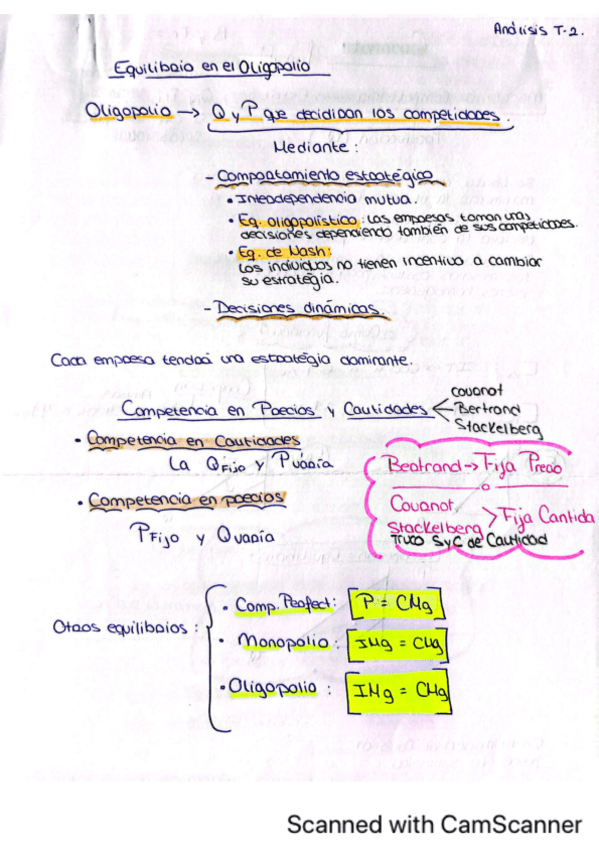 Análisis T-2.
Equilibrio en el Oligopolio
Oligopolio → Q y P que decidiran los competidores.
Mediante:
- Comportamiento estratégico
• Interdependencia mutua.
• Eq. oligopolístico: Las empresas toman unas
decisiones dependiendo también de sus competidores.
• Eq. de Nash:
Los individuos no tienen incentivo a cambiar
su estrategia.
- Decisiones dinámicas.
Cada empresa tendrá una estrategia dominante.
Competencia en Precios y Cantidades
Counot
Bertrand
Stackelberg
• Competencia en Cantidades
La Q Fijo y P varía
• Competencia en precios
P Fijo y Q varía
Bertrand → Fija Precio
Counot
Stackelberg > Fija Cantida
Truco S y C de Cantidad
Otros equilibrios:
• Comp. Perfect: P = CMg
• Monopolio: IMg = CMg
• Oligopolio: IMg = CMg
Scanned with CamScanner